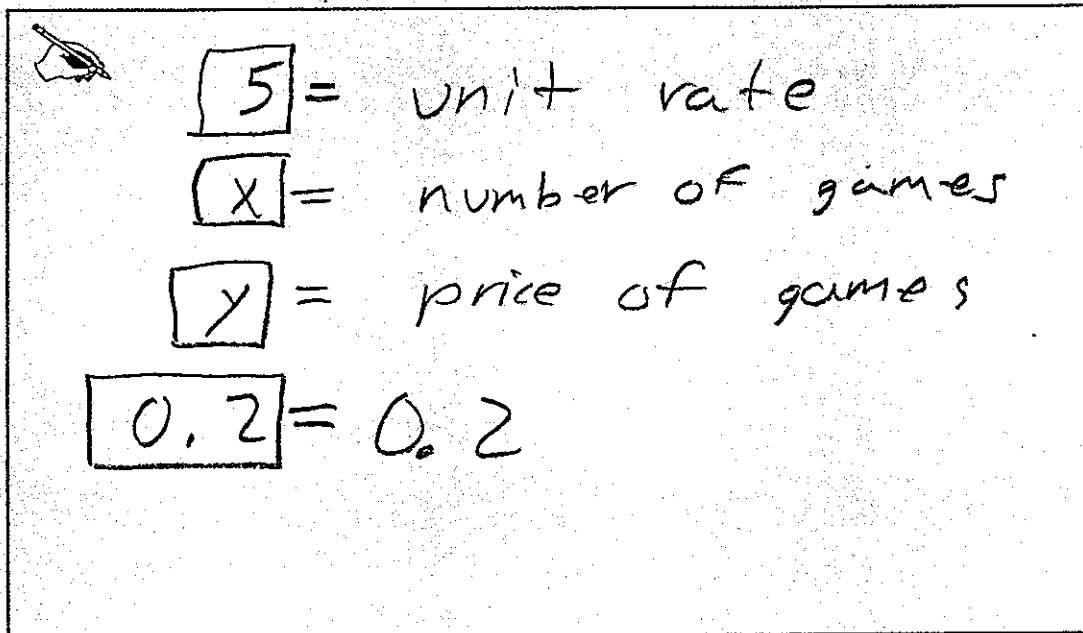 5 = unit rate
x = number of games
y = price of games
0.2 = 0.2